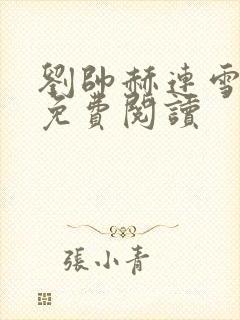 劉帥赫連雪
免費閱讀
張小青